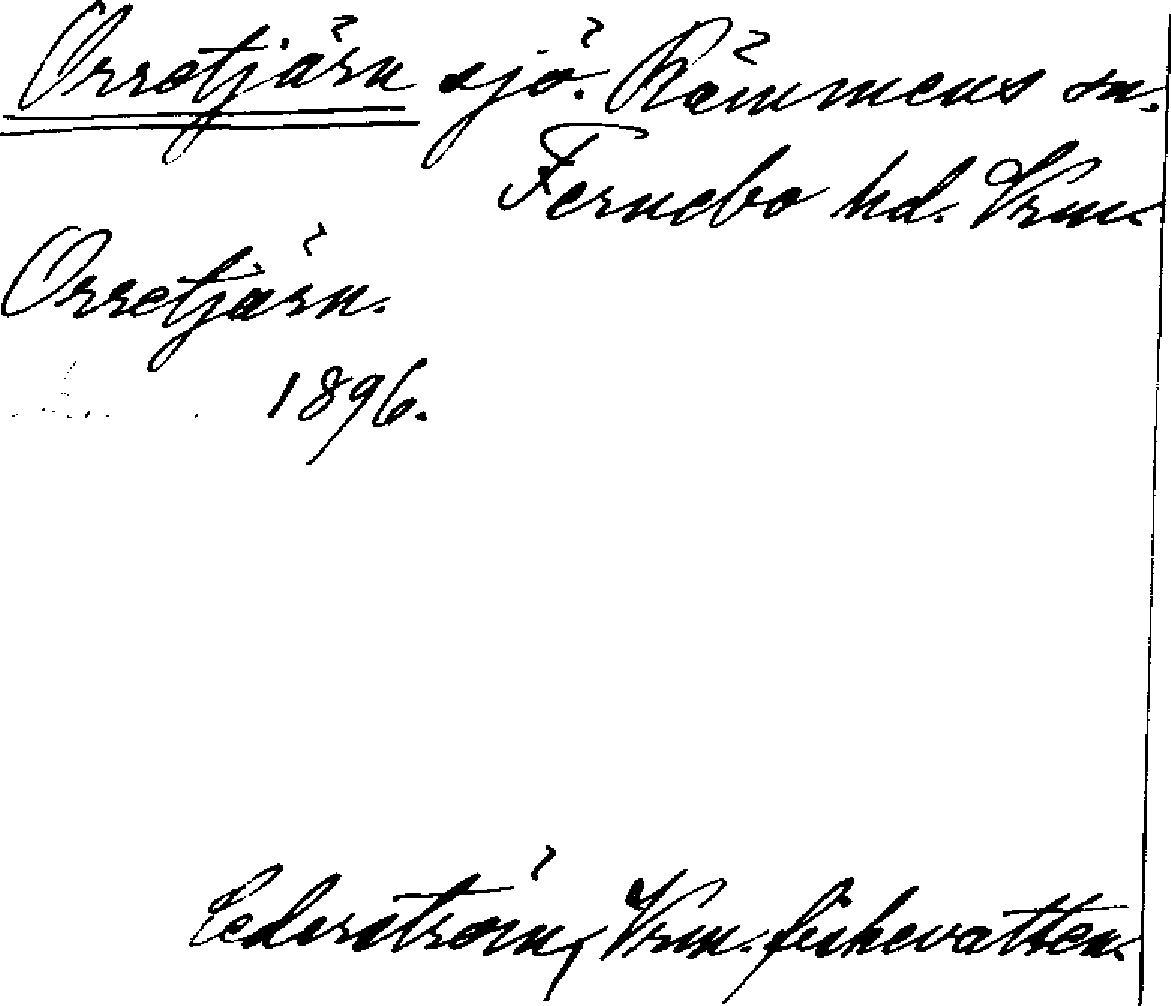 Orretjärn sjö. Rämmens sn.
Fernebo hd. Vrm.
Orretjärn.
1896.
Cederström, Vrm. fiskevatten.